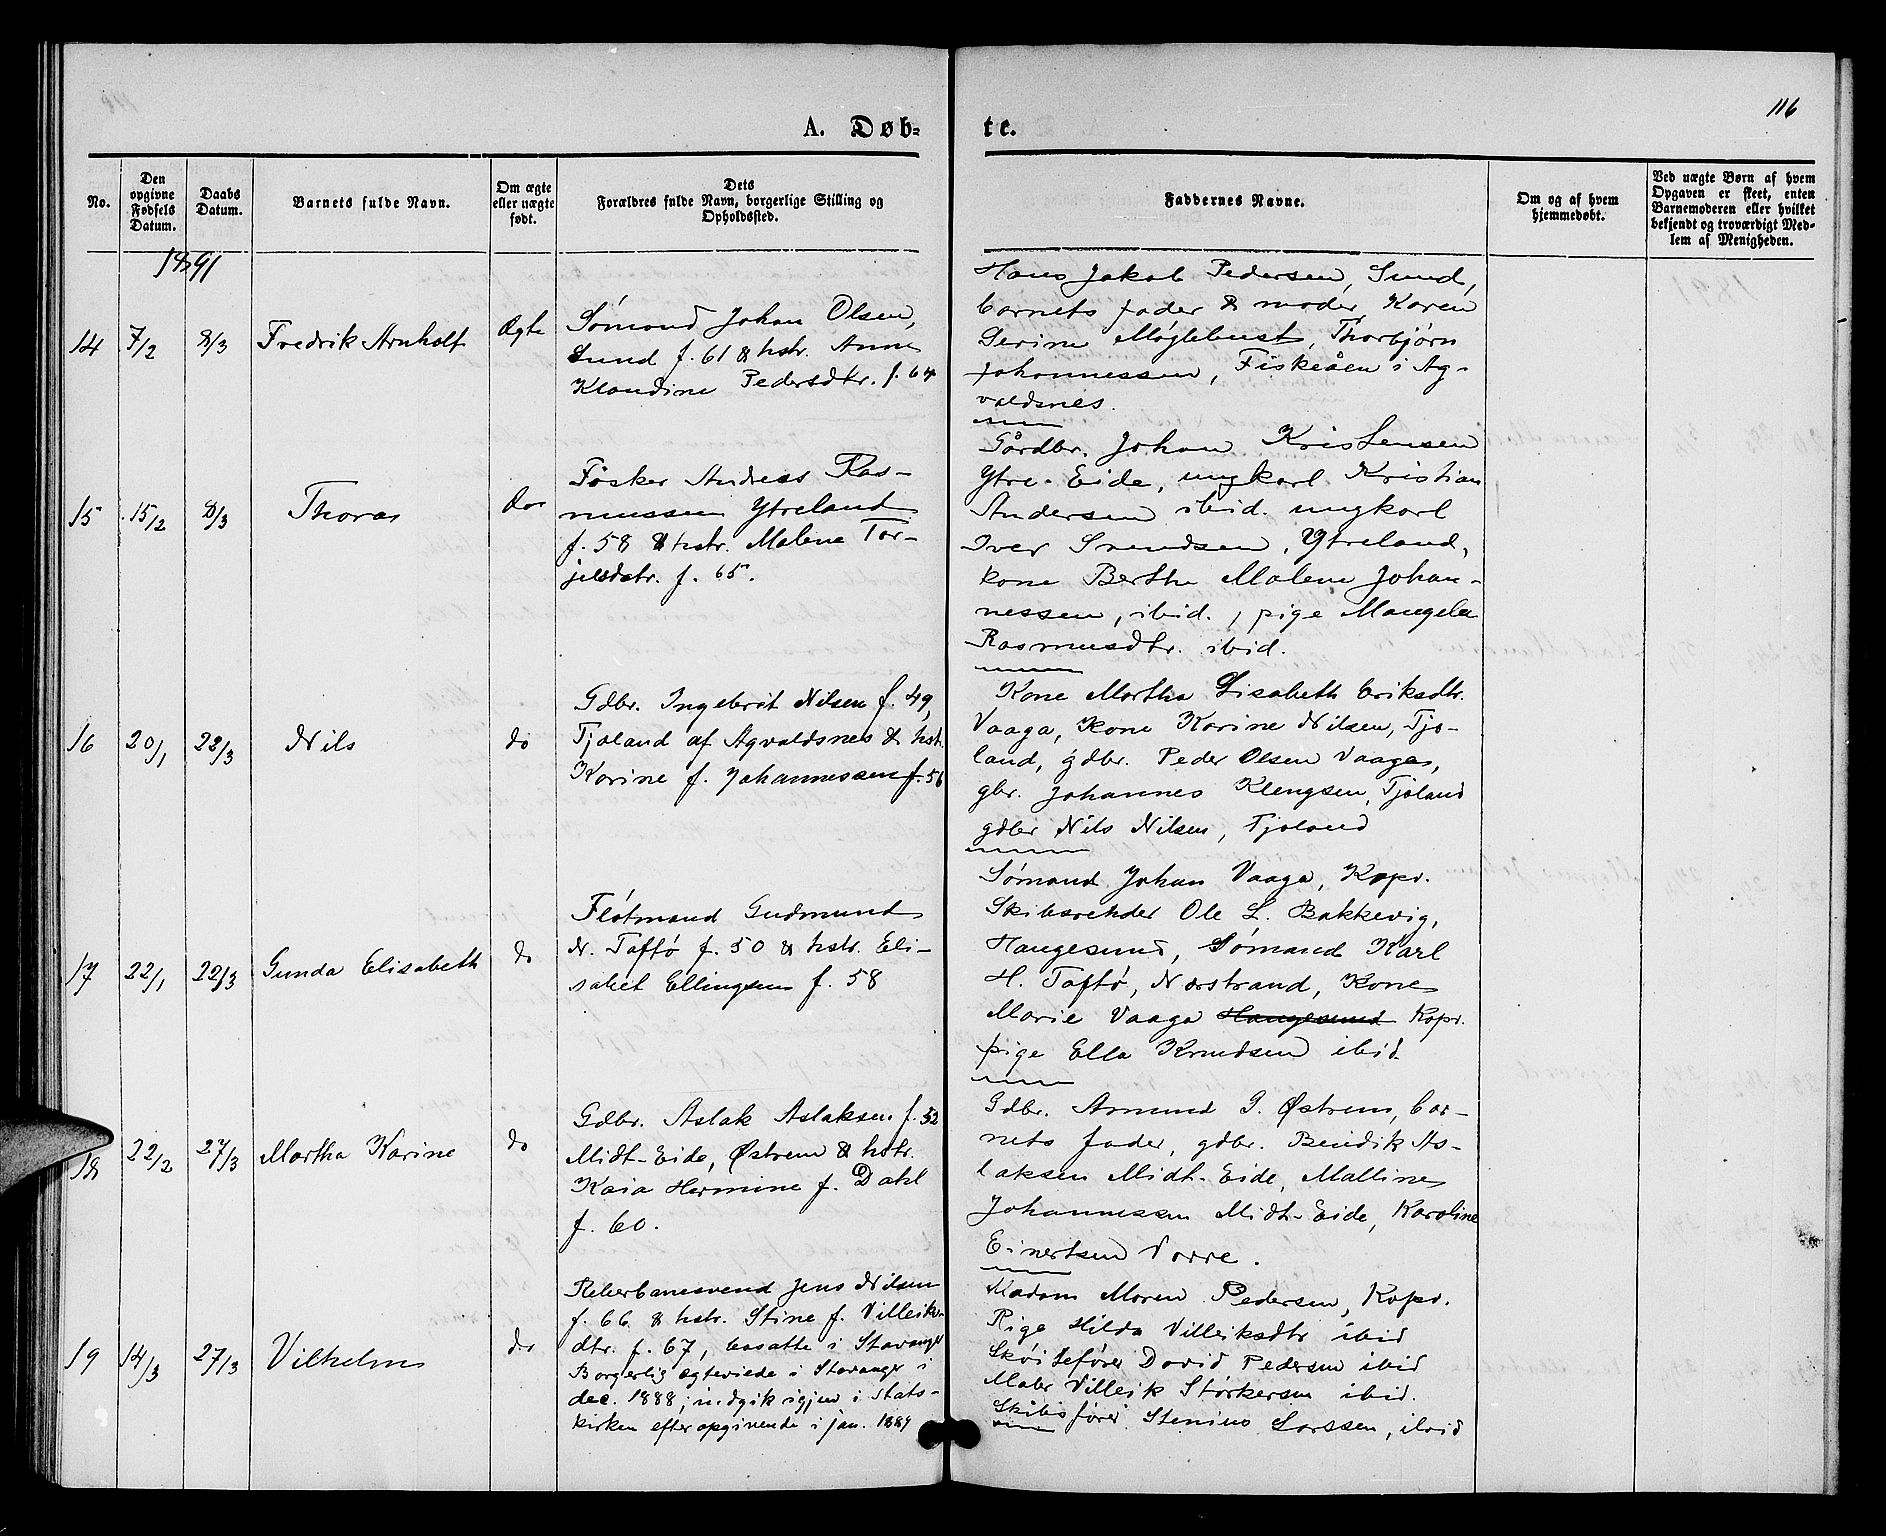 116
A. Døb-
te.
No.
Den
opgivne
Fødsels
Datum.
Daabs
Datum.
Barnets fulde Navn.
Om ægte
eller uægte
født.
Dets
Forældres fulde Navn, borgerlige Stilling og
Opholdssted.
Faddernes Navne.
Om og af hvem
hjemmedøbt.
Ved uægte Børn af hvem
Opgaven er skeet, enten
Barnemoderen eller hvilket
bekjendt og troværdigt Med-
lem af Menigheden.
1891
14 7/2 8/3 Fredrik Arnholt Ægte
Sømand Johan Olsen,
Sund f. 61 & hstr. Anne
Klaudine Pedersdtr. f. 64
Hans Jakob Pedersen, Sund,
barnets fader & moder, Karen
Serine Møglebust, Thorbjørn
Johannessen, Fiskeåen i Ag-
valdsnes.
15 15/2 8/3 Thoras do
Fisker Andreas Ras-
mussen Ytreland
f. 58 & hstr. Malene Tor-
jelsdatr. f. 65.
Gårdbr. Johan Kristensen
Ytre-Eide, ungkarl Kristian
Andersen ibid. ungkarl
Iver Svendsen, Ytreland,
kone Berthe Malene Johan-
nessen, ibid., pige Mangela
Rasmusdtr. ibid.
16 20/1 22/3 Nils do
Gdbr. Ingebrit Nilsen f. 49,
Tjoland af Agvaldsnes & hstr.
Karine f. Johannessen f. 56
Kone Martha Lisabeth Eriksdtr.
Vaaga, Kone Karine Nilsen, Tjo-
land, gdbr. Peder Olsen Vaage,
gbr. Johannes Klengsen, Tjoland
gdbr Nils Nilsen, Tjoland
17 22/1 22/3 Gunda Elisabeth do
Fløtmand Gudmund
N. Taftø f. 50 & hstr. Eli-
sabet Ellingsen f. 58
Sømand Johan Vaage, Kopr.
Skibsreder Ole L. Bakkevig,
Haugesund, Sømand Karl
H. Taftø, Nærstrand, Kone
Marie Vaaga Haugesund Kopr.
pige Ella Knudsen ibid
18 22/2 27/3 Martha Karine do
Gdbr. Aslak Aslaksen f. 52
Midt-Eide, Østrem & hstr.
Kaia Hermine f. Dahl
f. 60.
Gdbr. Amund J. Østrem, bar-
nets fader, gdbr. Bendik As-
laksen Midt-Eide, Malline
Johannessen Midt-Eide, Karoline
Einertsen Vorre.
19 14/3 27/3 Vilhelm do
Reberbanesvend Jens Nilsen
f. 66 & hstr. Stine f. Villeiks-
dtr. f. 67, bosatte i Stavanger
Borgerlig ægteviede i Stavanger i
dec. 1888; indgik igjen i Stats-
kirken efter opgivende i jan. 1889
Madam Maren Pedersen, Kopr.
Pige Hilda Villeiksdtr ibid
Skøitefører David Pedersen ibid
Maler Villeik Størkersen ibid.
Skibsfører Stenius Larssen, ibid